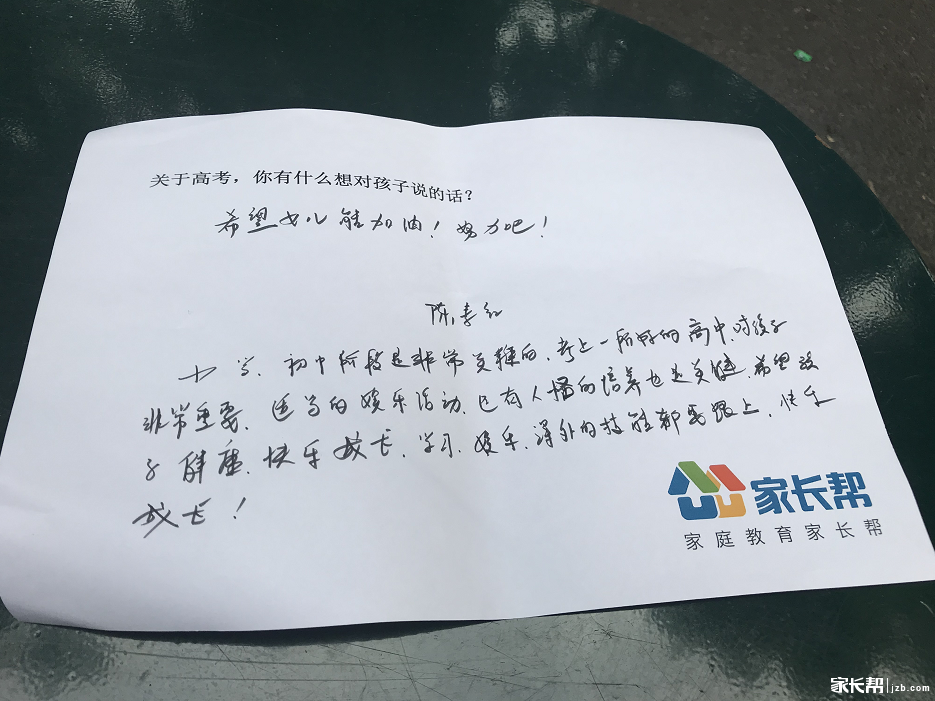 关于高考，你有什么想对孩子说的话？
希望女儿能加油！努力吧！
陈春红
小学、初中阶段是非常关键的，考上一所好的高中，对孩子
非常重要，适当的娱乐活动，还有人格的培养也是关键，希望孩
子健康、快乐成长，学习、娱乐、课外的技能都要跟上，快乐
成长！
家长帮
家庭教育家长帮
家长帮 jzb.com